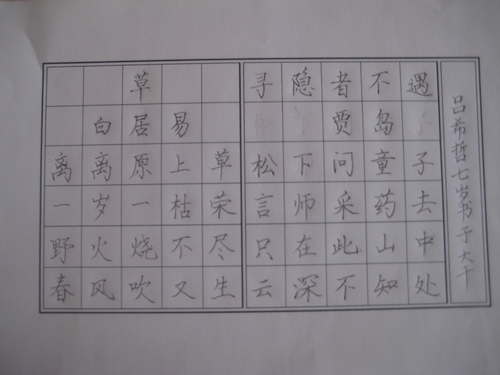 草
白居易
离离原上草
一岁一枯荣
野火烧不尽
春风吹又生
寻隐者不遇
贾岛
松下问童子
言师采药去
只在此山中
云深不知处
吕希哲七岁书于大干